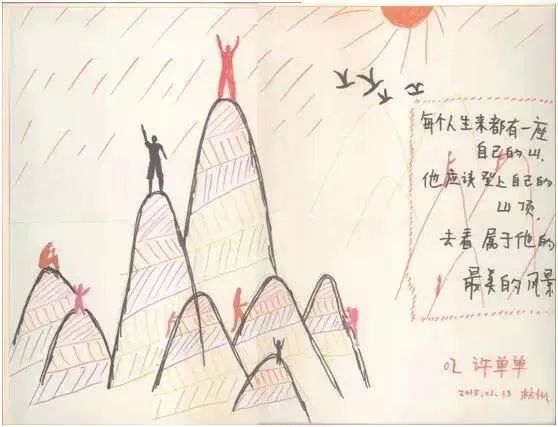 每个人生来都有一座
自己的山,
他应该登上自己的
山顶,
去看属于他的
最美的风景
许单单
杭州